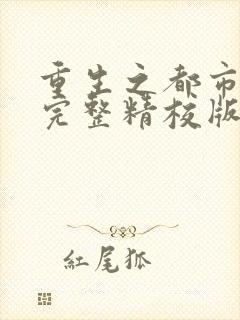 重生之都市
完整精校版
紅尾狐